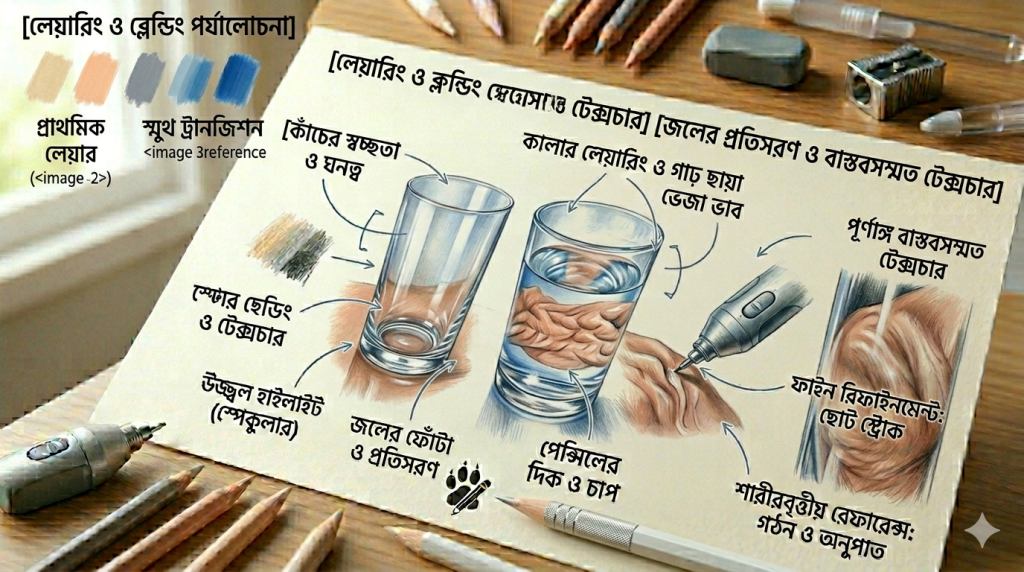 [লেয়ারিং ও ব্লেন্ডিং পর্যালোচনা]
প্রাথমিক
লেয়ার
(<image -2>)
স্মুথ ট্রানজিশন
<image 3reference
[লেয়ারিং ও ক্লন্ডিং টেক্সচার] [জলের প্রতিসরণ ও বাস্তবসম্মত টেক্সচার]
[কাঁচের স্বচ্ছতা
ও ঘনত্ব
কালার লেয়ারিং ও গাঢ় ছায়া
ভেজা ভাব
পূর্ণাঙ্গ বাস্তবসম্মত
টেক্সচার
ছেডিং
ও টেক্সচার
উজ্জ্বল হাইলাইট
(স্পেকুলার)
জলের ফোঁটা
ও প্রতিসরণ
পেন্সিলের
দিক ও চাপ
ফাইন রিফাইনমেন্ট:
ছোট স্ট্রোক
শারীরবৃত্তীয় রেফারেন্স:
গঠন ও অনুপাত